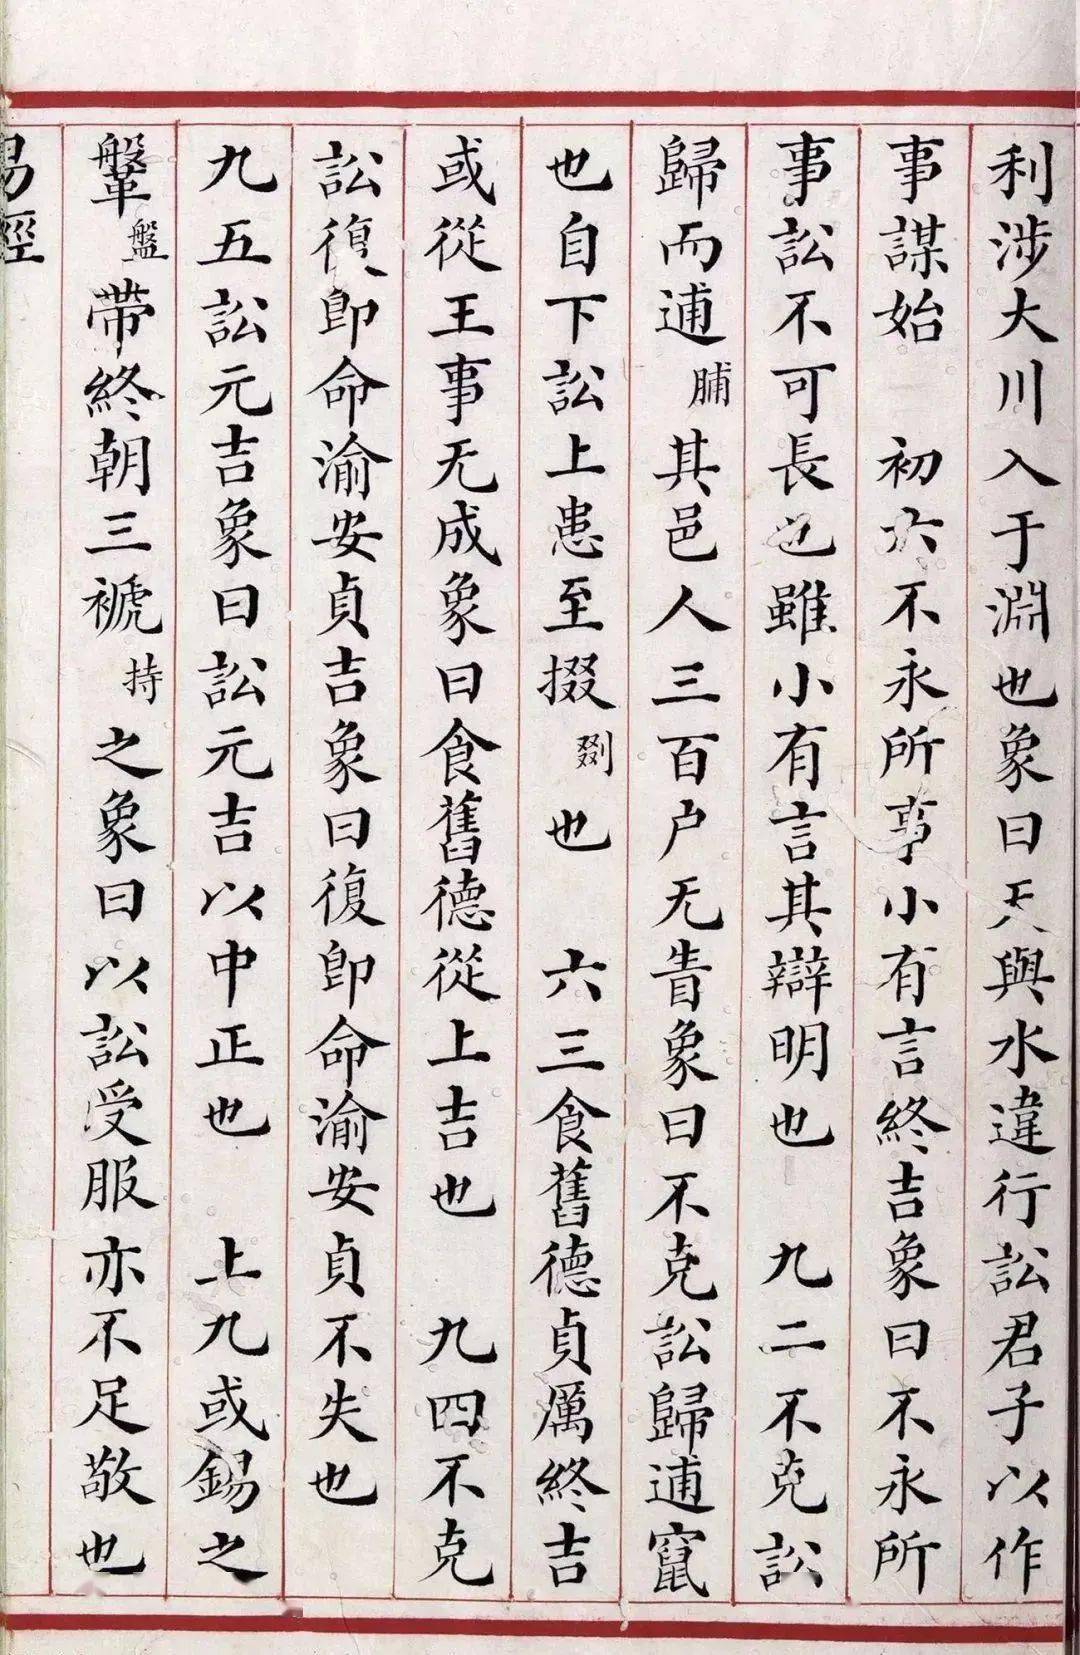 利涉大川入于淵也象曰天與水違行訟君子以作
事謀始 初六不永所事小有言終吉象曰不永所
事訟不可長也雖小有言其辯明也 九二不克訟
歸而逋脯其邑人三百户无眚象曰不克訟歸逋竄
也自下訟上患至掇剟也 六三食舊德貞厲終吉
或從王事无成象曰食舊德從上吉也 九四不克
訟復即命渝安貞吉象曰復即命渝安貞不失也
九五訟元吉象曰訟元吉以中正也 上九或錫之
鞶盤帶終朝三褫持之象曰以訟受服亦不足敬也
易經